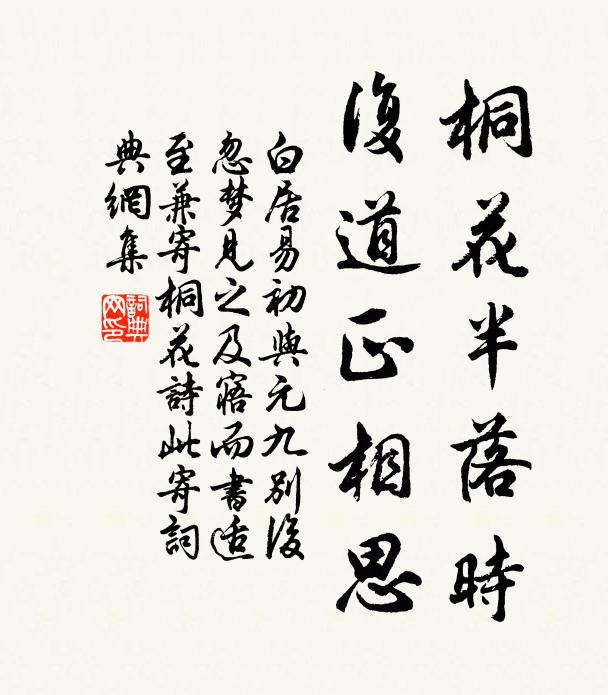 桐花半落時
復道正相思
白居易初與元九別後
忽梦見之及寤而書適
至兼寄桐花詩此寄詞
典網集
詞典網印